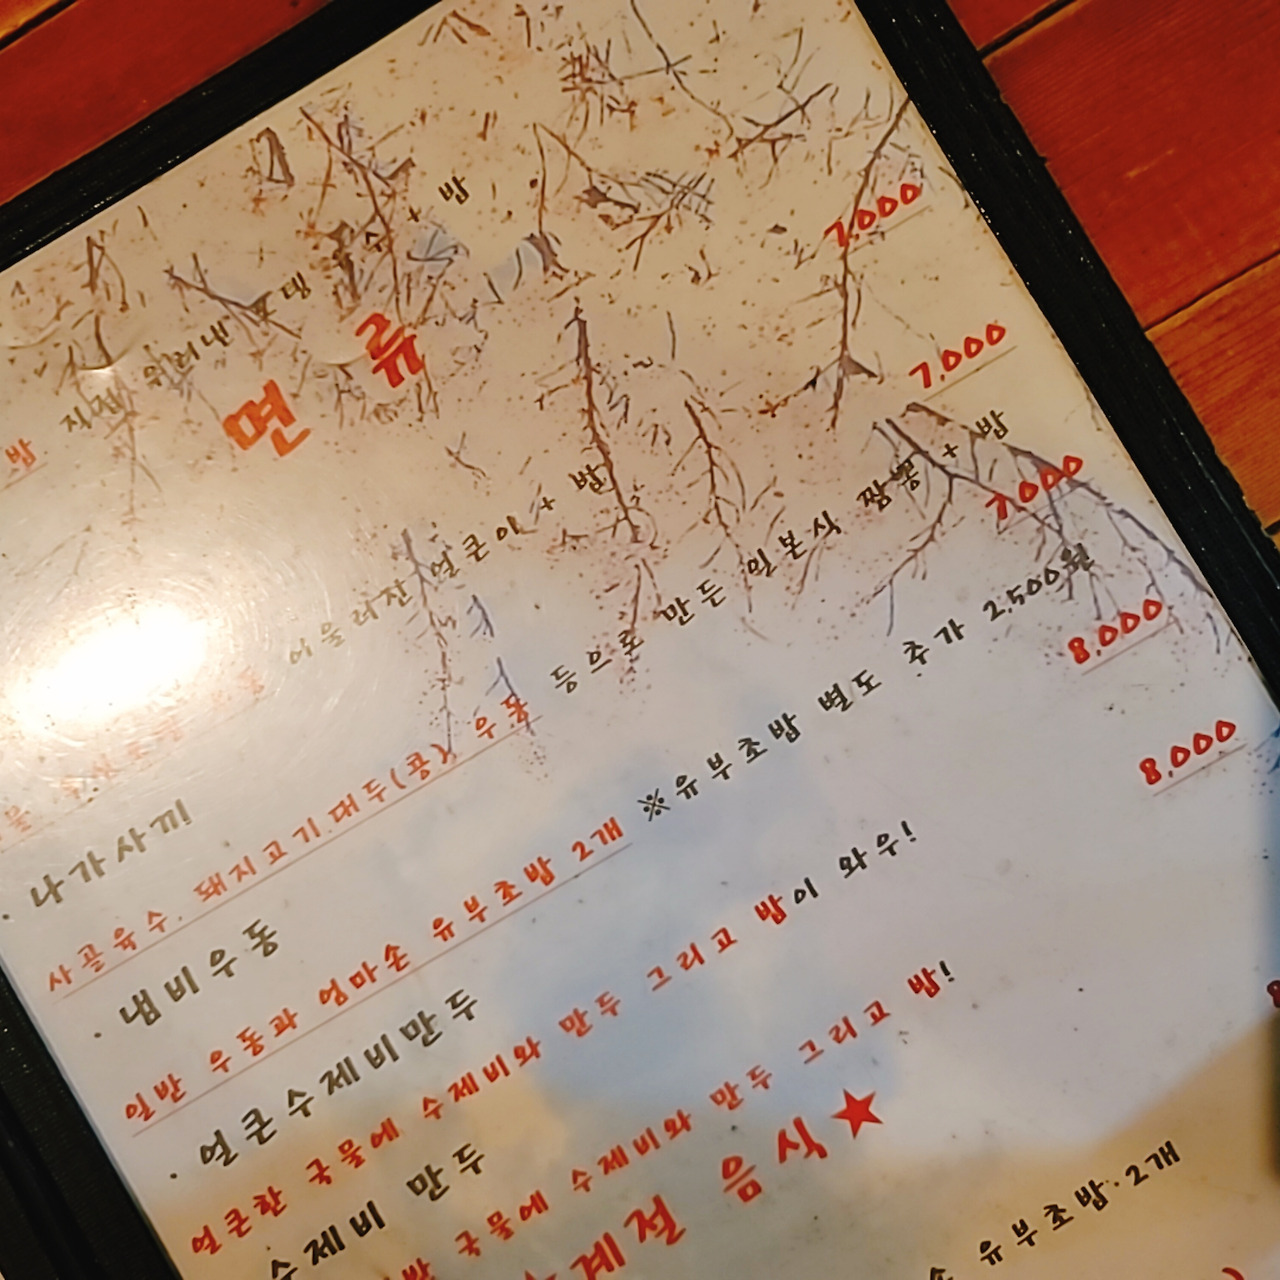 면 류
밥 진짜 우러낸 오뎅 육수 + 밥 7,000
어울러진 얼큰이 + 밥 7,000
· 나가사끼 7,000
사골육수, 돼지고기 대두(콩) 우동 등으로 만든 일본식 짬뽕 + 밥
· 냄비우동 8,000
일반 우동과 엄마손 유부초밥 2개 ※유부초밥 별도 추가 2,500원
· 얼큰수제비만두 8,000
얼큰한 국물에 수제비와 만두 그리고 밥이 와우!
수제비 만두 8
국물에 수제비와 만두 그리고 밥!
계절 음식★
유부초밥 2개